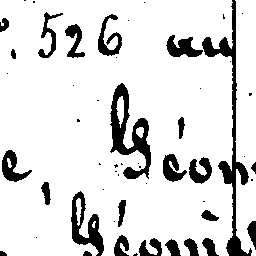 526 au
e, Géom
Géomèt